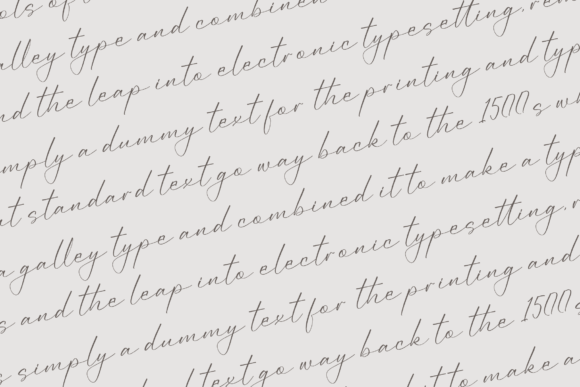 ols of
alley type and combined
nd the leap into electronic typesetting, rem
imply a dummy text for the printing and typ
at standard text go way back to the 1500s wh
a galley type and combined it to make a typ
s and the leap into electronic typesetting, r
s simply a dummy text for the printing and
text go way back to the 1500s
to make a